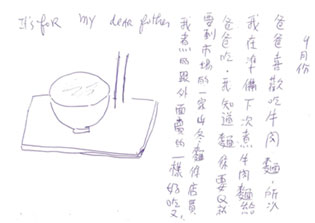 It's for my dear father
4月份
爸爸喜歡吃牛肉麵,所以
我在準備下次煮牛肉麵給
爸爸吃,先知道麵條要又放
要到市場的一家山東麵條店買
我煮的跟外面賣的一樣好吃又